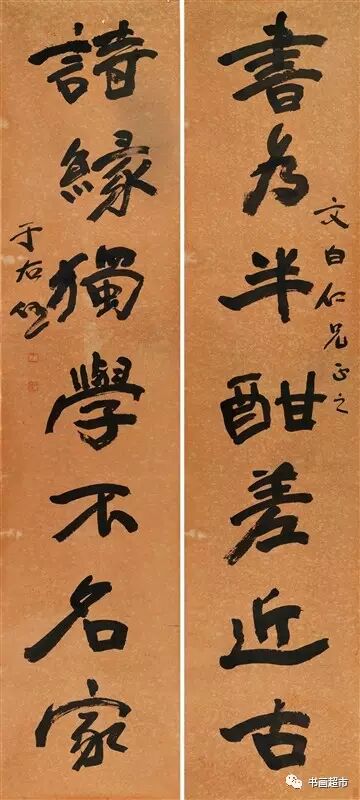 書為半酣差近古
文白仁兄正之
詩緣獨學不名家
于右任
书画超市